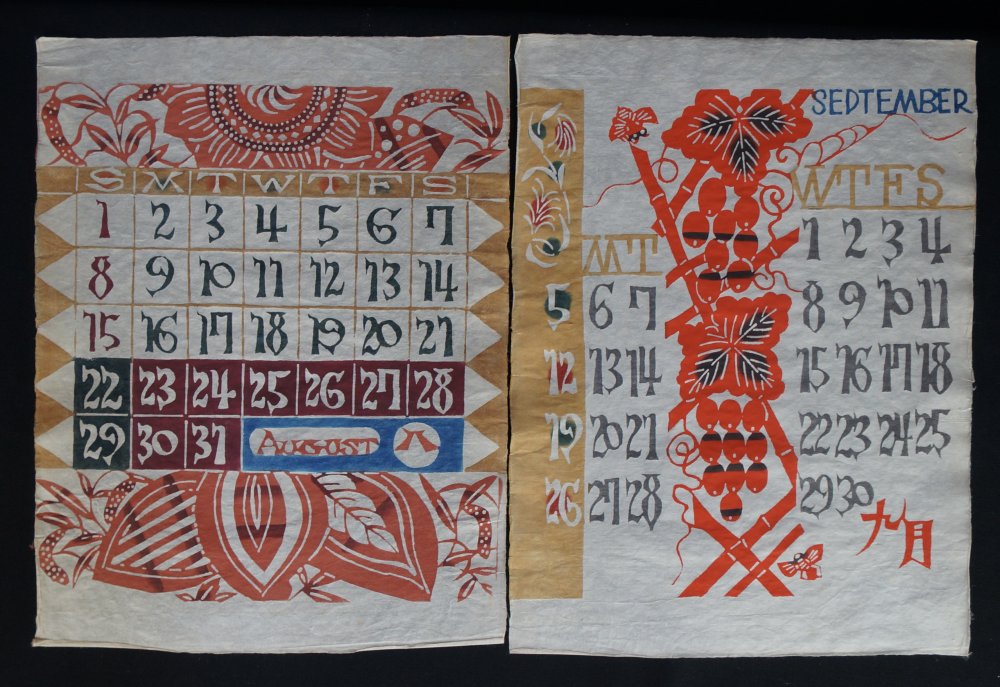 S M T W T F S
1 2 3 4 5 6 7
8 9 10 11 12 13 14
15 16 17 18 19 20 21
22 23 24 25 26 27 28
29 30 31 AUGUST 八
SEDTEMBER
M T W T F S
1 2 3 4
5 6 7 8 9 10 11
12 13 14 15 16 17 18
19 20 21 22 23 24 25
26 27 28 29 30
九月